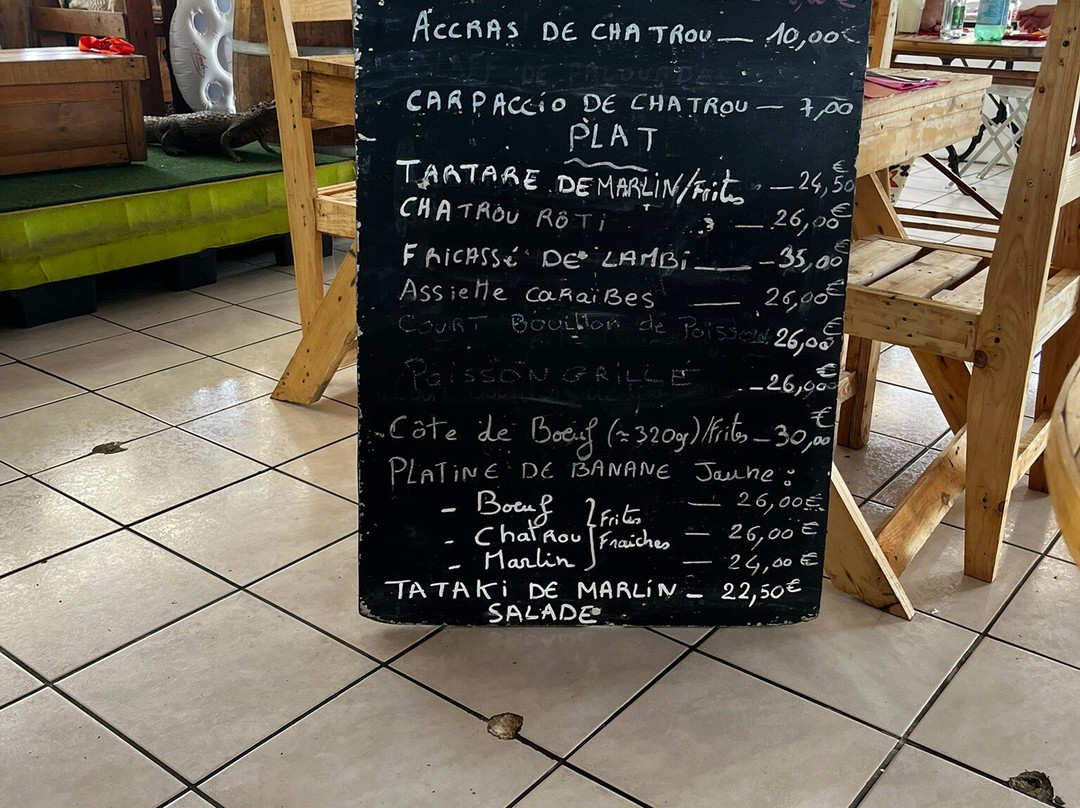 ACCRAS DE CHATROU — 10,00€
CARPACCIO DE CHATROU — 7,00
PLAT
TARTARE DE MARLIN/Frites — 24,50€
CHATROU RÔTI — 26,00€
FRICASSÉ DE LAMBI — 35,00€
Assiette CARAÏBES — 26,00€
COURT Bouillon de Poisson 26,00€
POISSON GRILLÉ — 26,00€
Côte de Boeuf (≈320g)/Frites — 30,00€
PLATINE DE BANANE Jaune :
- Boeuf — 26,00€
Frites
- Chatrou — 26,00€
Fraiches
- Marlin — 24,00€
TATAKI DE MARLIN — 22,50€
SALADE